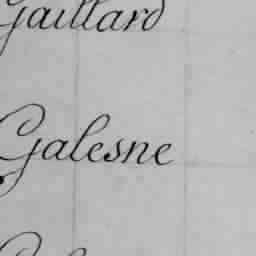 Gaillard
Galesne